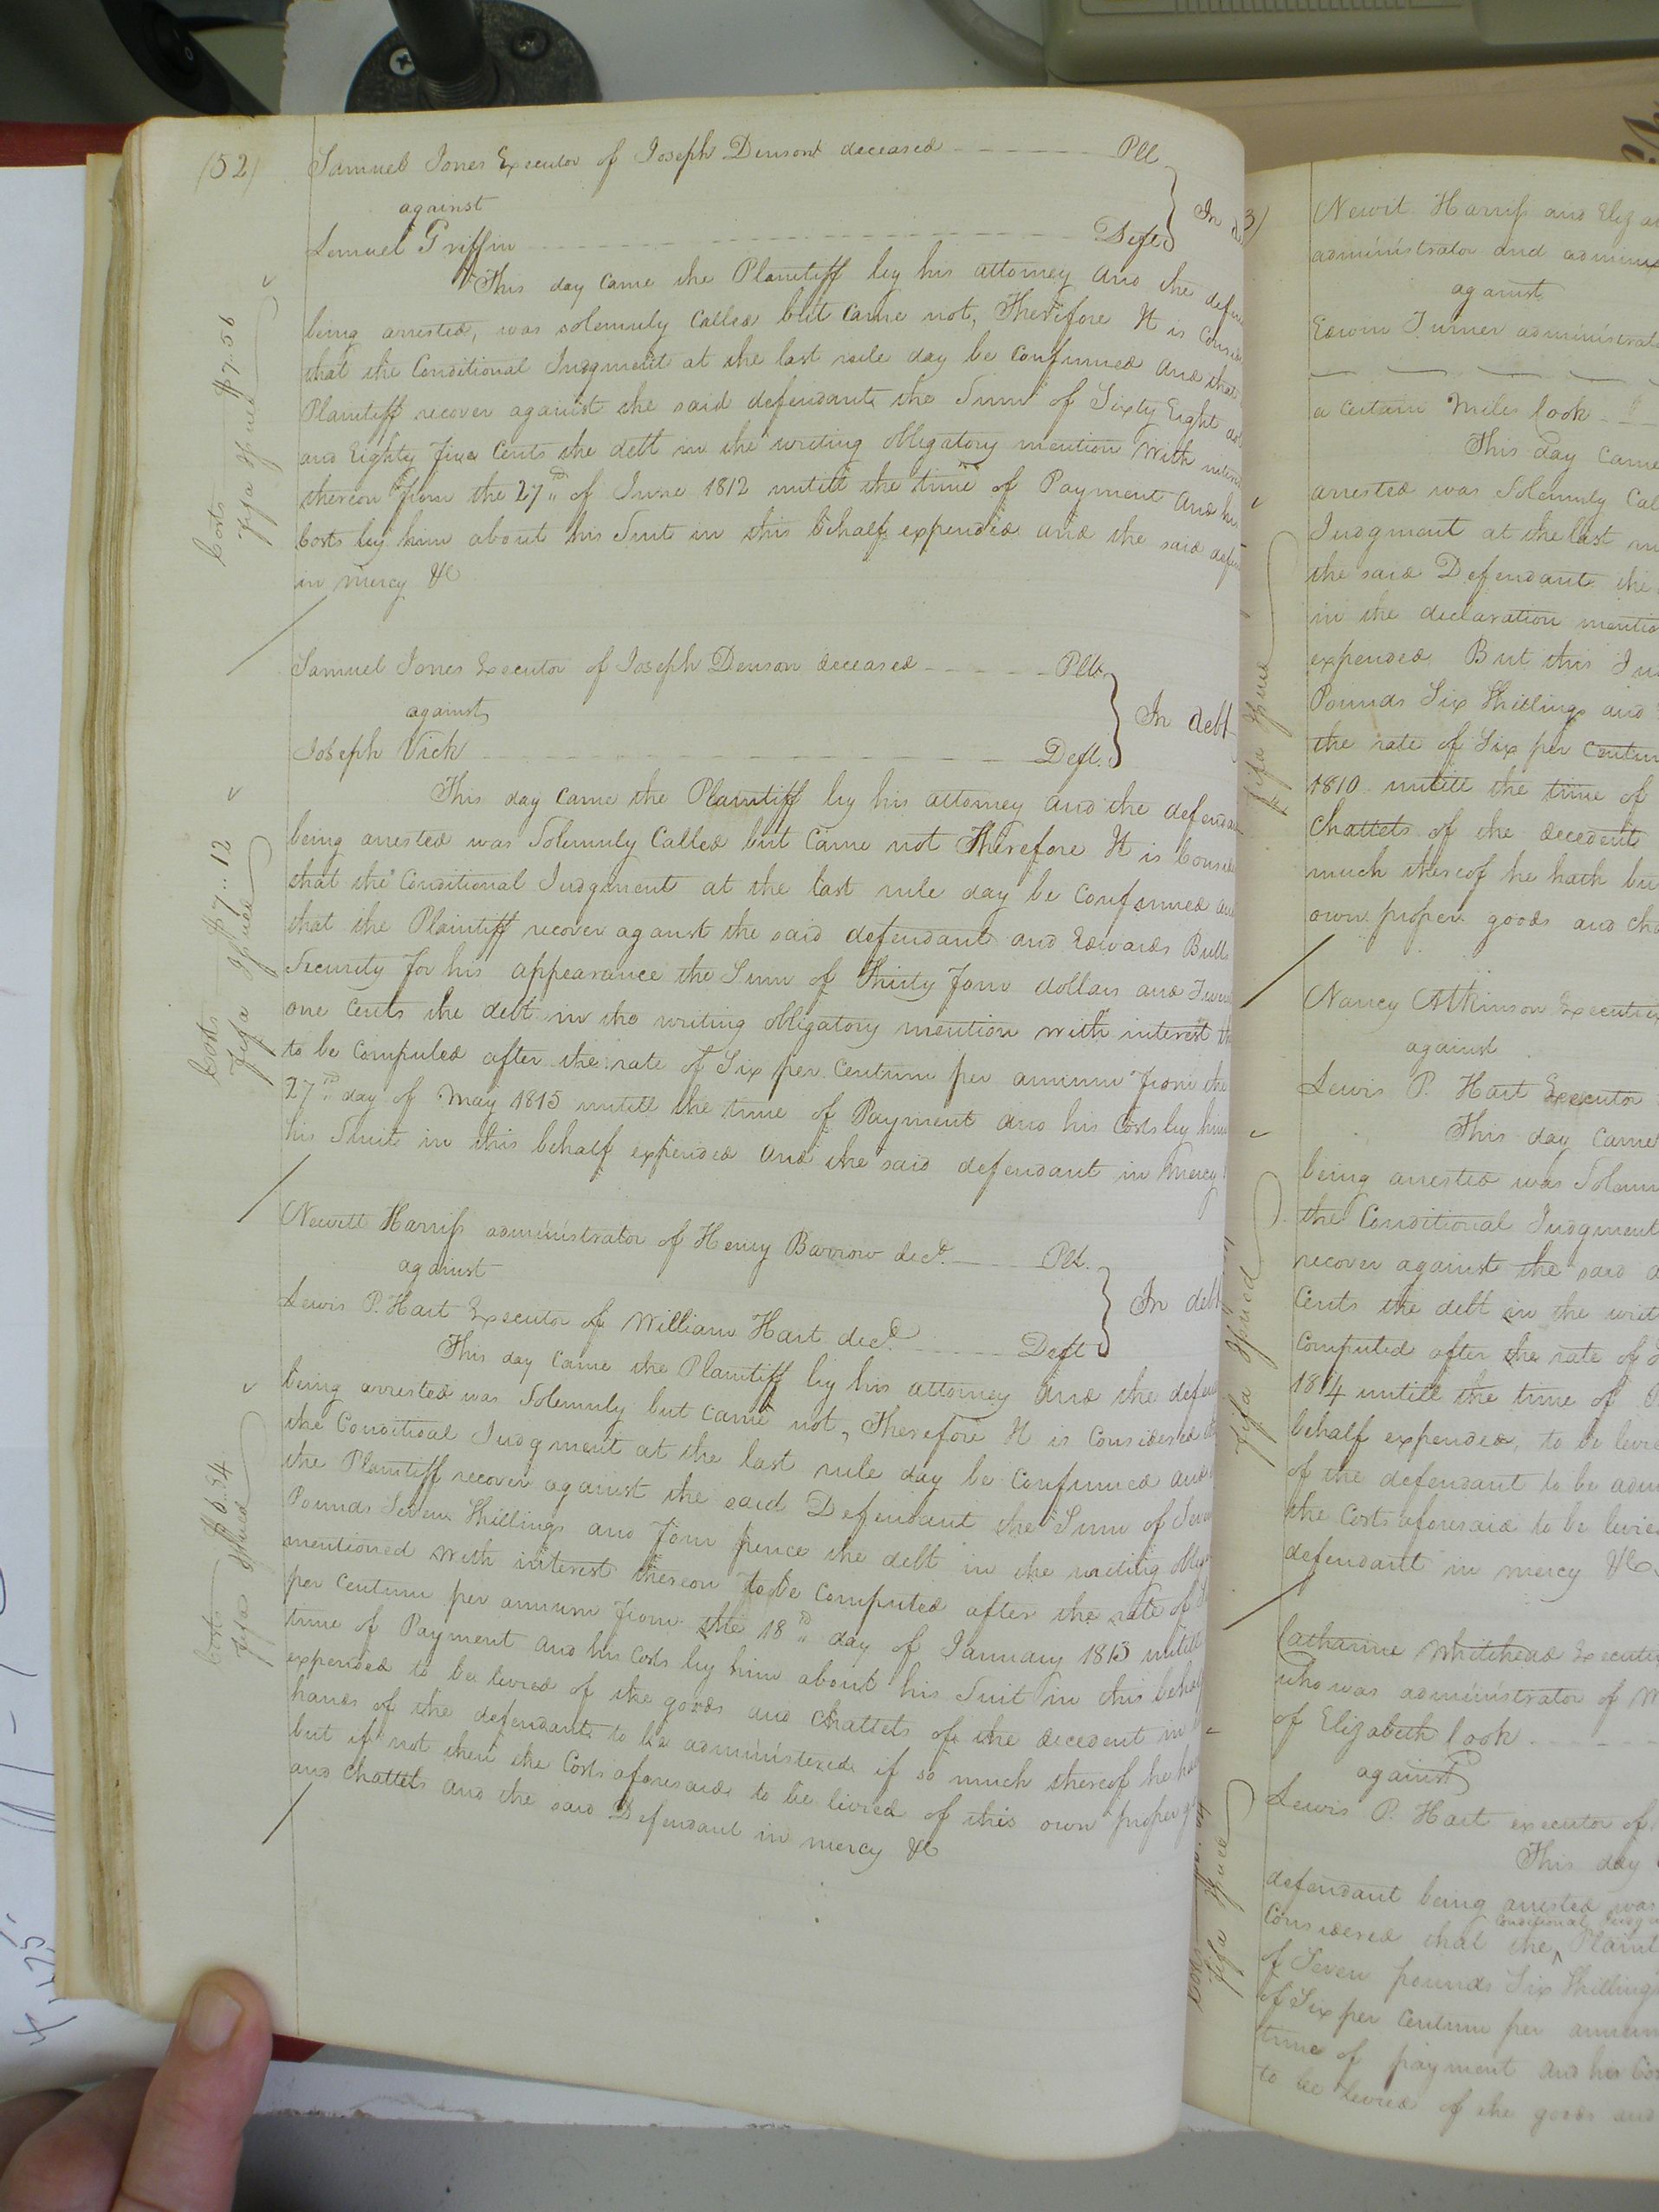 (52)
Samuel Jones Executor of Joseph Denson deceased Plt
against
Lemuel Griffin Deft
In
This day came the Plaintiff by his attorney and the
being arrested, was solemnly called but came not, Therefore It is
that the Conditional Judgment at the last rule day be confirmed and that
Plaintiff recover against the said defendant the Sum of Sixty Eight
and Eighty five Cents the debt in the writing obligatory mention With
thereon from the 27th of June 1812 untill the time of Payment and his
Costs by him about his Suit in this behalf expended and the said
in mercy &c
Costs $7..56
fifa Issued
Samuel Jones Executor of Joseph Denson deceased Plt
against
Joseph Vick Deft.
In debt
This day came the Plaintiff by his attorney and the
being arrested was Solemnly Called but came not Therefore It is
that the Conditional Judgment at the last rule day be confirmed
that the Plaintiff recover against the said defendant and Edwards
Security for his appearance the Sum of Thirty four dollars and
one Cents the debt in the writing obligatory mention with interest
to be computed after the rate of Six per Centum per annum from the
27th day of may 1815 untill the time of Payment and his Costs by him
his Suit in this behalf expended and the said defendant in mercy
Costs $7..12
fifa Issued
Newitt Harriss administrator of Henry Barrow decd. Plt.
against
Lewis P. Hart Executor of William Hart decd. Deft
In debt
This day came the Plaintiff by his attorney and the
being arrested was Solemnly but came not, Therefore It is Considered
the Conditioal Judgment at the last rule day be confirmed and
the Plaintiff recover against the said Defendant the Sum of
Pounds Seven Shillings and four pence the debt in the writing
mentioned with interest thereon to be computed after the rate of
per centum per annum from the 18th day of January 1813 untill
time of Payment and his Costs by him about his Suit in this
expended to be levied of the goods and chattels of the decedent in
hands of the defendant to be administered if so much thereof he
but if not then the Costs aforesaid to be levied of this own proper
and chattels and the said Defendant in mercy &c
Costs $6..34
fifa Issued
3)
Newit Harriss and
administrator and
against
Edwin Turner
a certain Miles Cook
This day came
arrested was Solemnly
Judgment at the last
the said Defendant the
in the declaration
expended But this
Pounds Six Shillings and
the rate of Six per Centum
1810 untill the time of
Chattels of the decedent
much thereof he hath
own proper goods and
fifa Issued
Nancy Atkinson
against
Lewis P. Hart Executor
This day came
being arrested was
the Conditional Judgment
recover against the said
Cents the debt in the
computed after the rate of
1814 untill the time of
behalf expended, to be
of the defendant to be
the Costs aforesaid to be
defendant in mercy &c
fifa Issued
Catharine Whitehead
who was administrator of
of Elizabeth Cook
against
Lewis P. Hart executor of
This day
defendant being arrested was
Conditional
Considered that the
of Seven pounds Six Shillings
of Six per Centum per
time of payment and his
to be levied of the goods and
fifa Issued